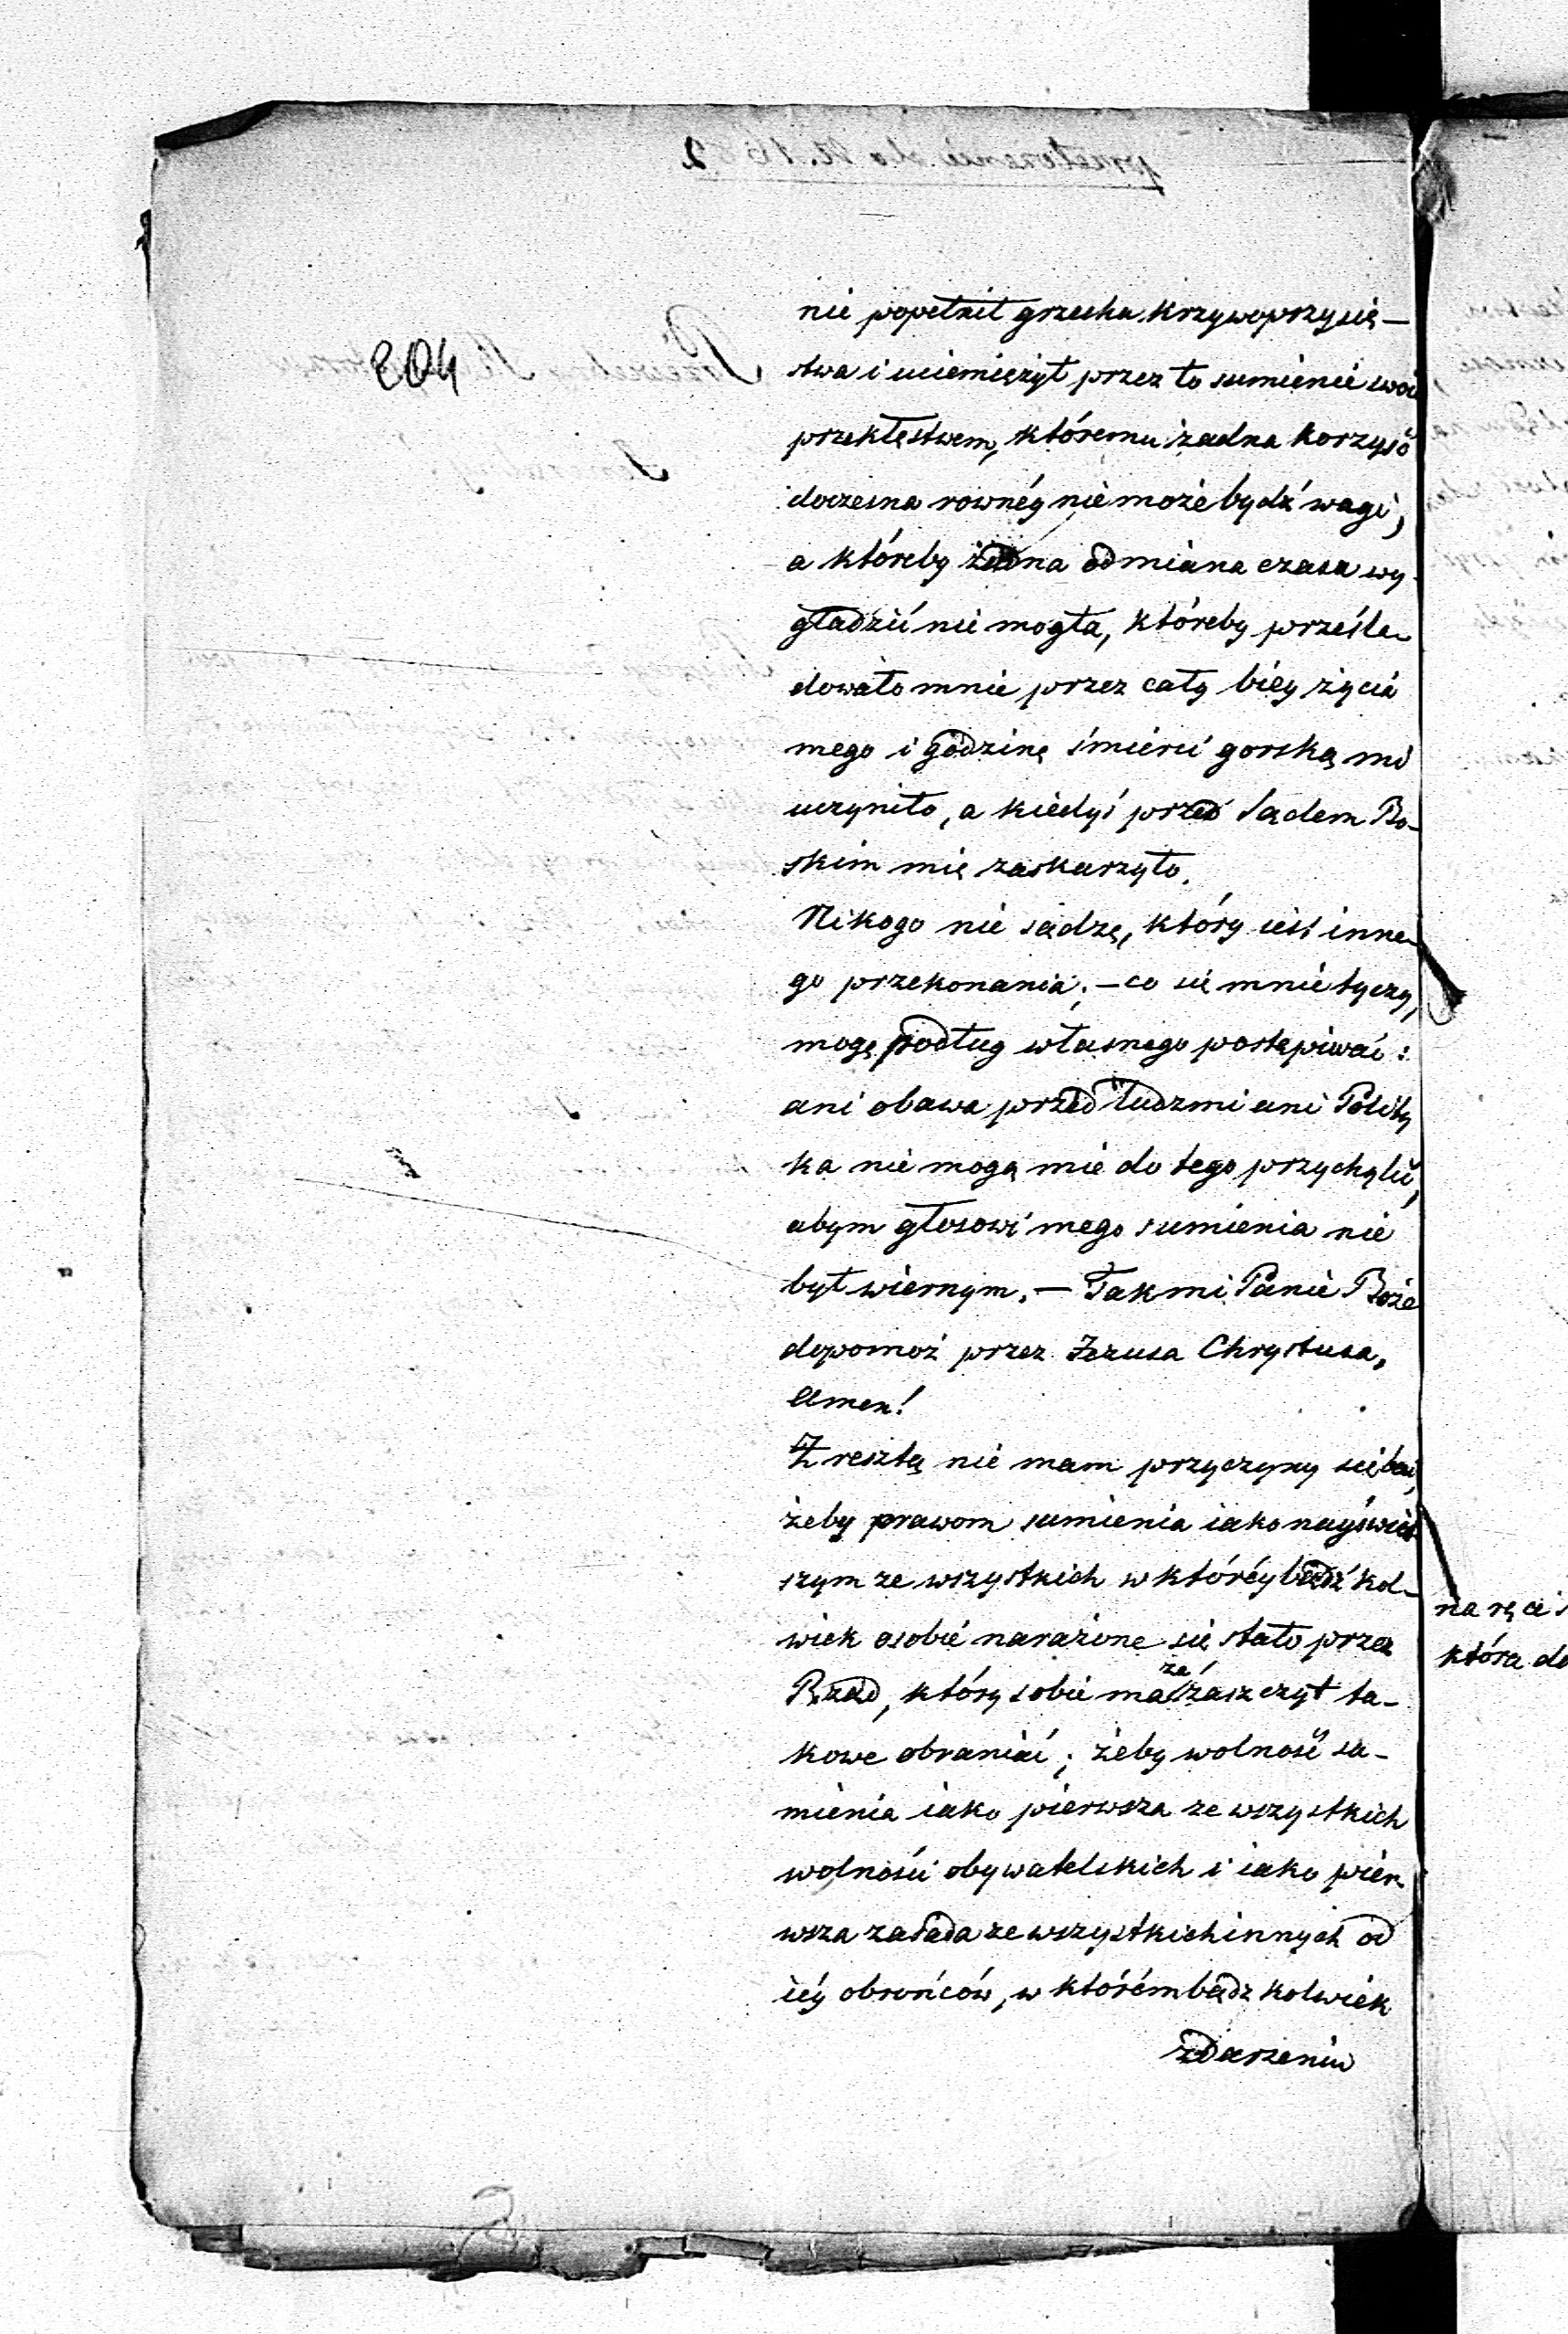 204
nie popełnił grzechu krzywoprzysię-
stwa i uciemiężył przez to sumienie swoie
przeklęstwem, któremu żadna korzyść
doczesna rownéy nie może bydź wagi,
a któreby żadna odmiana czasu wy-
gładzić nie mogła, któreby prześla-
dowało mnie przez cały bieg życia
mego i godzinę śmierci gorską mi
uczyniło, a kiedyś przed Sądem Bo-
skim mię zaskarzyło.
Nikogo nie sądzę, który iest inne-
go przekonania; — co się mnie tyczy,
mogę podług własnego postępiwać:
ani obawa przed ludzmi ani Polity
ka nie mogą mie do tego przychylić,
abym głosowi mego sumienia nie
był wiernym. — Tak mi Panie Boże
dopomoż przez Jezusa Chrystusa,
Amen!
Z resztą nie mam przyczyny się bać,
żeby prawom sumienia iako nayświęt
szym ze wszystkich w któréy bądź kol-
wiek osobie narażone się stało przez
Rząd, który sobie ma za zaszczyt ta-
kowe obraniać; żeby wolność su-
mienia iako pierwsza ze wszystkich
wolności obywatelskich i iako pier-
wsza zasada ze wszystkich innych od
iéy obrońców, w którém bądz kolwiek
zdarzeniu
na ręce
która do